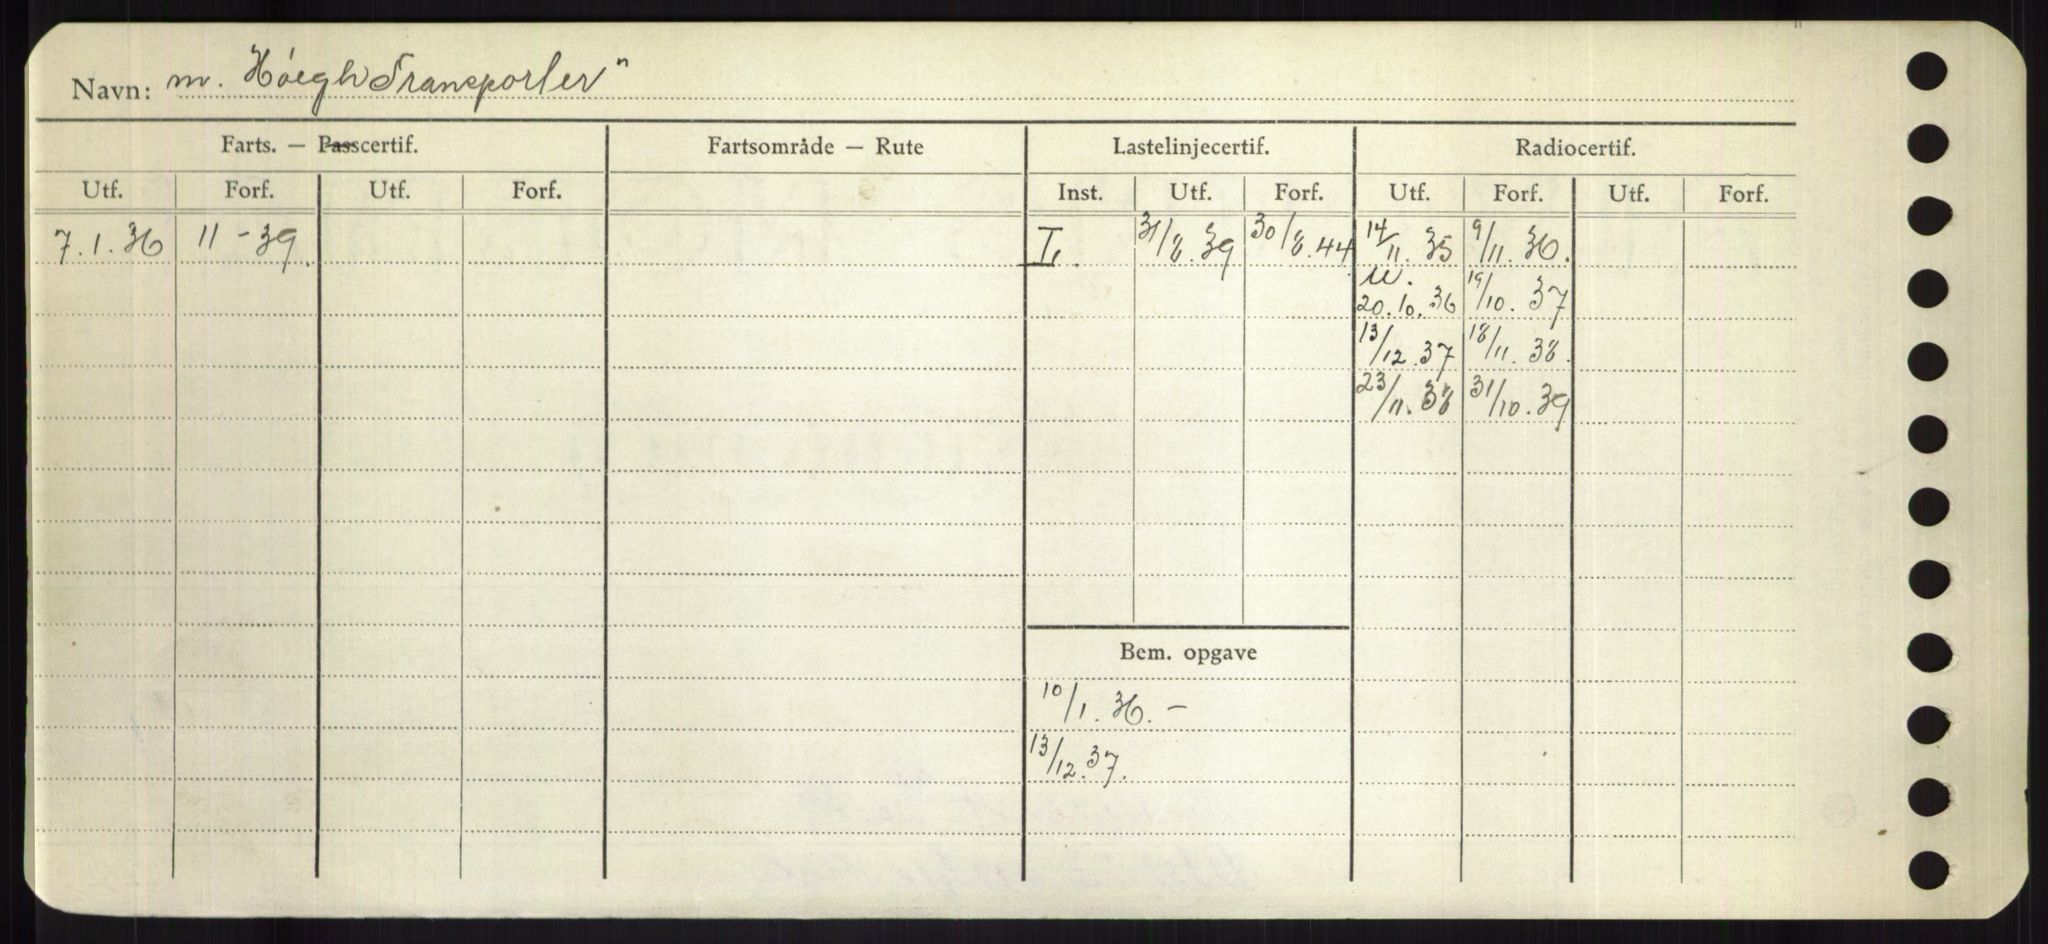 Navn: m. Høegh Transporter"
Farts. — Passcertif. Fartsområde — Rute Lastelinjecertif. Radiocertif.
Utf. Forf. Utf. Forf. Inst. Utf. Forf. Utf. Forf. Utf. Forf.
7.1.36 11-39. I. 31/8.39 30/8.44 14/11.35 9/11.36.
u. 20.10.36 19/10.37
13/12.37 18/11.38.
23/11.38 31/10.39
Bem. opgave
10/1.36.-
13/12.37.